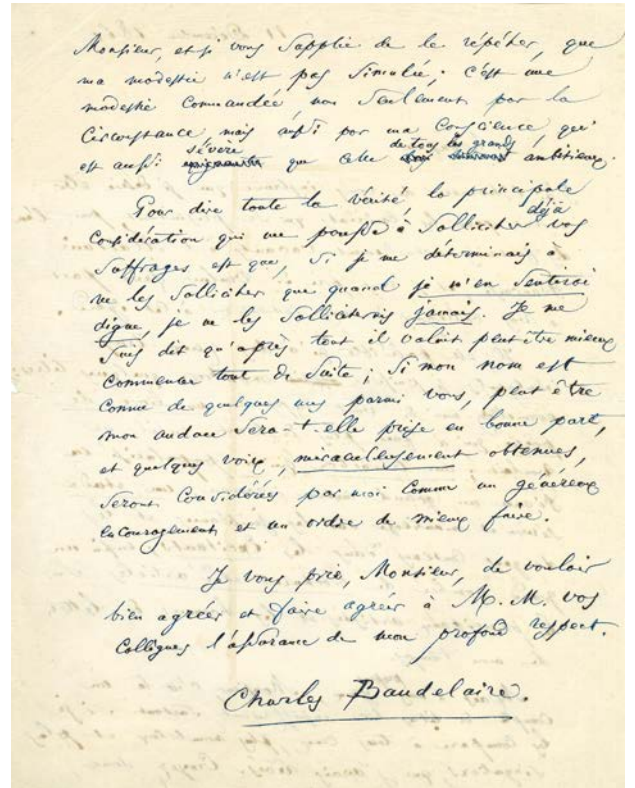 Monsieur, et je vous supplie de le répéter, que
ma modestie n'est pas simulée; c'est une
modestie commandée, non seulement par la
Circonstance, mais aussi par ma Conscience, qui
sévère de tous les grands
est aussi que celle ambitieux.
Pour dire toute la vérité, la principale
déjà
Considération qui me pousse à Solliciter vos
Suffrages est que, Si je me déterminais à
ne les Solliciter que quand je m'en Sentirai
digne, je ne les Solliciterais jamais. Je me
Suis dit qu'après tout il valait peut être mieux
commencer tout de Suite; Si mon nom est
Connu de quelques uns parmi vous, peut être
mon audace Sera-t-elle prise en bonne part,
et quelques voix, miraculeusement obtenues,
Seront Considérées par moi Comme un généreux
encouragement et un ordre de mieux faire.
Je vous prie, Monsieur, de vouloir
bien agréer et faire agréer à M. M. vos
Collègues l'assurance de mon profond respect.
Charles Baudelaire.